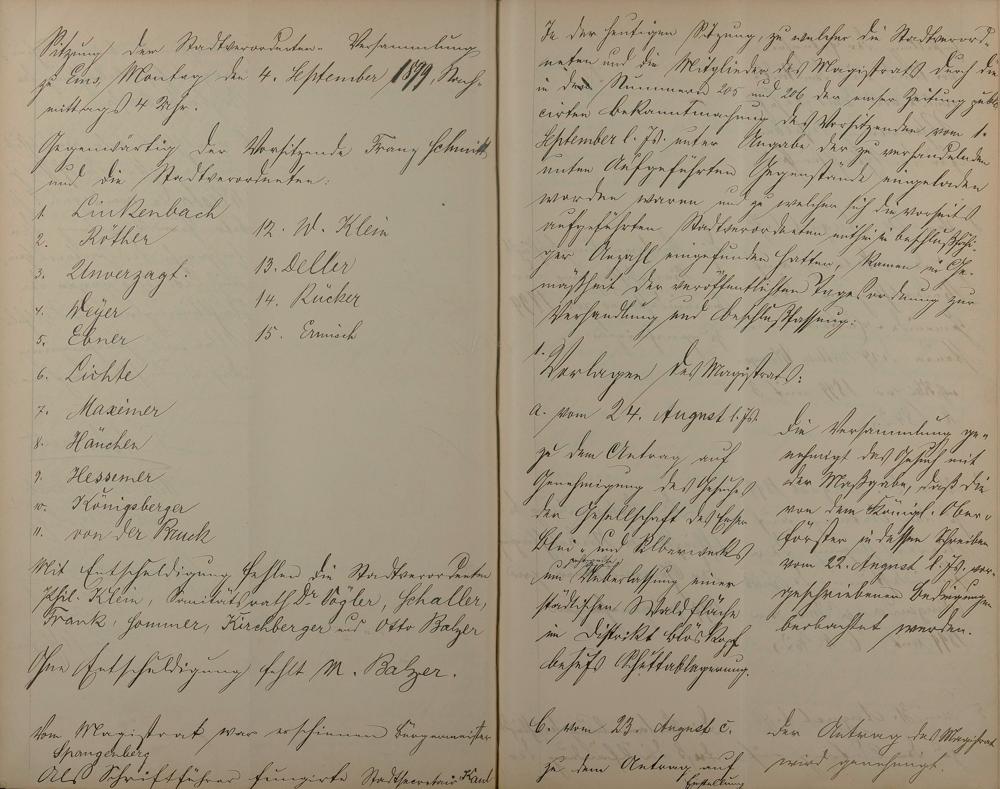 Sitzung der Stadtverordneten-Versammlung
zu Ems, Montag den 4. September 1899, Nach-
mittags 4 Uhr.
Gegenwärtig der Vorsitzende Franz Schmitt
und die Stadtverordneten:
1. Linkenbach
2. Röther
3. Unverzagt.
4. Weyer
5. Ebner
6. Lichte
7. Maximer
8. Hänchen
9. Hessemer
10. Königsberger
11. von der Bruck
12. W. Klein
13. Deller
14. Rücker
15. Ermisch
Mit Entschuldigung fehlen die Stadtverordneten
Phil. Klein, Sanitätsrath Dr Vogler, Schaller,
Frank, Sommer, Kirchberger und Otto Balzer
Ohne Entschuldigung fehlt M. Balzer.
Vom Magistrat war erschienen Bürgermeister
Spangenberg
Als Schriftführer fungirte Stadtsecretair Kaul
In der heutigen Sitzung, zu welcher die Stadtverord-
neten und die Mitglieder des Magistrats durch die
in den Nummern 205 und 206 der Emser Zeitung publi-
cirten Bekanntmachung des Vorsitzenden vom 1.
September l. Js. unter Angabe der zu verhandelnden
unten aufgeführten Gegenstände eingeladen
worden waren und zu welcher sich die vorseits
aufgeführten Stadtverordneten mithin in beschlußfähi-
ger Anzahl eingefunden hatten, kamen in Ge-
mäßheit der veröffentlichten Tagesordnung zur
Verhandlung und Beschlußfassung:
1. Vorlagen des Magistrats:
a. vom 24. August l. Js.
zu dem Antrag auf
Genehmigung des Gesuches
der Gesellschaft des Emser
Blei- und Silberwerks
um Ueberlassung einer
städtischen Waldfläche
im Distrikt Blöskopf
behufs Schuttablagerung.
Die Versammlung ge-
nehmigt das Gesuch mit
der Maßgabe, daß die
von dem Königl. Ober-
förster in dessen Schreiben
vom 22. August l. Js. vor-
geschriebenen Bedingungen
beobachtet werden.
b. vom 23. August c.
zu dem Antrag auf
Erstellung
Der Antrag des Magistrats
wird genehmigt.